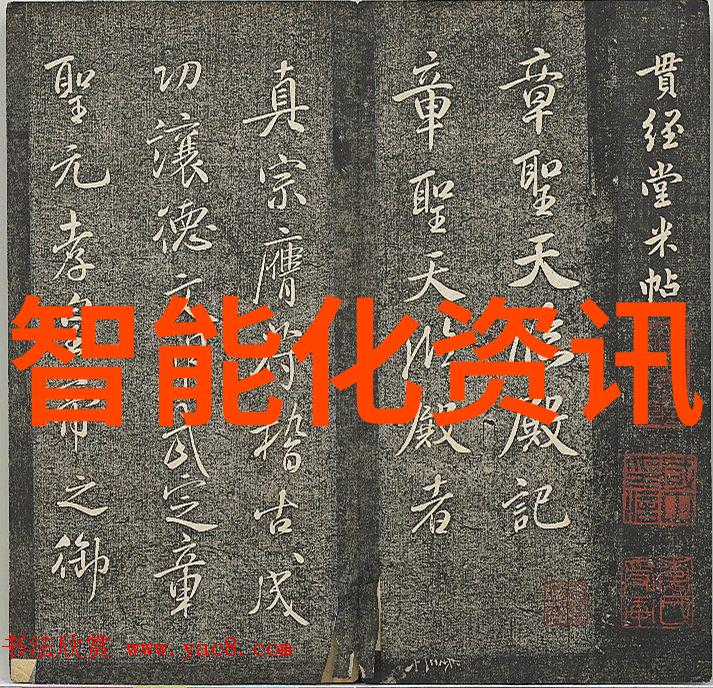 貫經堂米帖
章聖天臨殿記
章聖天臨殿者
真宗膺符稽古成
功讓德文明武定章
聖元孝皇帝之御
智能化资讯
书法欣赏 www.yac8.com